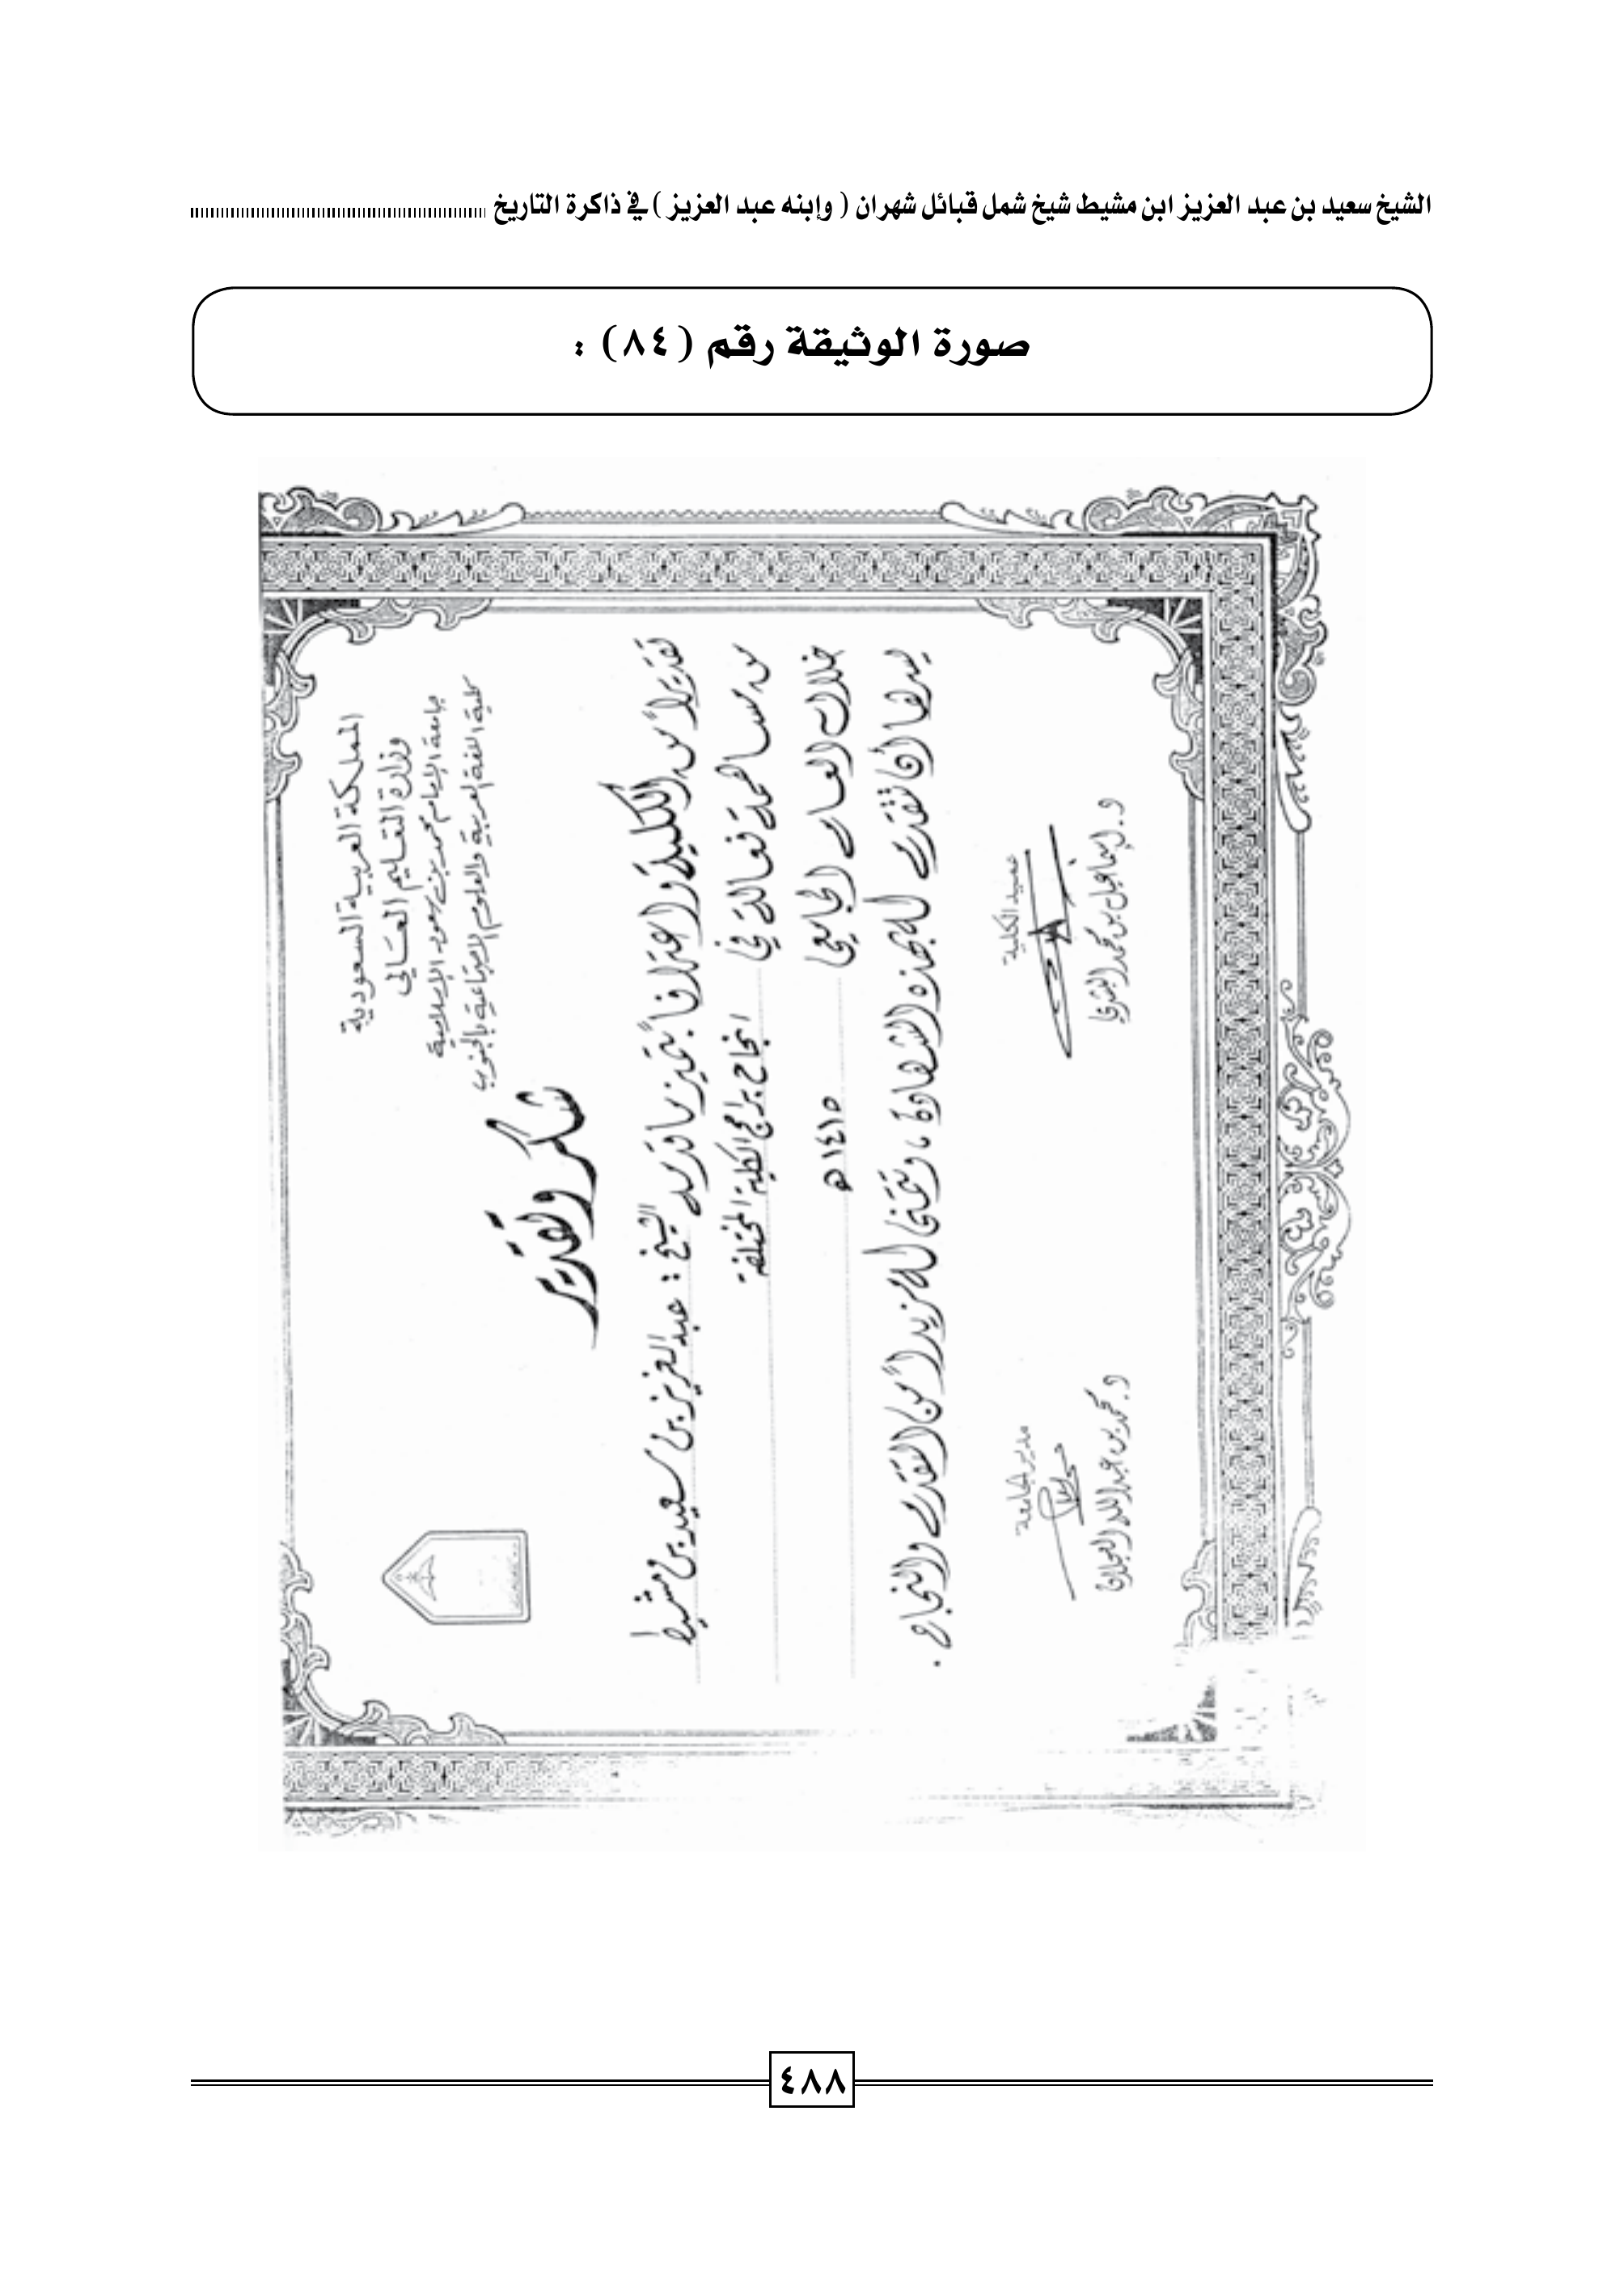 الشيخ سعيد بن عبد العزيز ابن مشيط شيخ شمل قبائل شهران ( وإبنه عبد العزيز ) في ذاكرة التاريخ
صورة الوثيقة رقم (٨٤) :
المملكة العربية السعودية
وزارة التعليم العالي
جامعة الإمام محمد بن سعود الإسلامية
كلية اللغة العربية والعلوم الاجتماعية بالجنوب
شكر وتقدير
تقديراً من الكلية واعترافاً بتميز ما قدمه الشيخ : عبد العزيز بن سعيد بن مشيط
من مساهمة فعالة في انجاح برامج الكلية المختلفة
خلال العام الجامعي ١٤١٥ هـ
يسرها أن تتقدم له بهذه الشهادة ، وتتمنى له مزيداً من التقدم والنجاح .
عميد الكلية
د. إسماعيل بن محمد البشري
مدير الجامعة
د. محمد بن عبد الله العجلان
٤٨٨